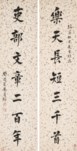 樂天長短三千首
吏部文章二百年